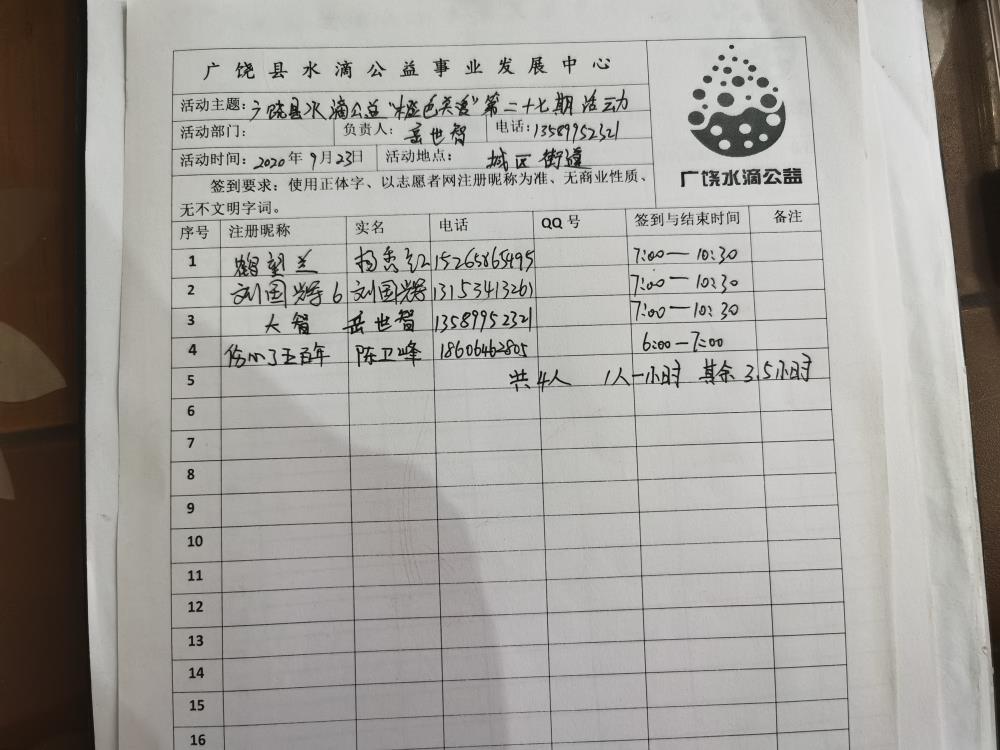 广饶县水滴公益事业发展中心
活动主题：广饶县水滴公益“橙色关爱”第二十七期活动
活动部门： 负责人：岳世智 电话：13589952321
活动时间：2020年9月23日 活动地点： 城区街道
签到要求：使用正体字、以志愿者网注册昵称为准、无商业性质、
无不文明字词。
广饶水滴公益
序号 注册昵称 实名 电话 QQ号 签到与结束时间 备注
1 鹤望兰 杨秀红 15265865495 7:00—10:30
2 刘国辉6 刘国辉 13153413261 7:00—10:30
3 大智 岳世智 13589952321 7:00—10:30
4 陈卫峰 18606462805 6:00—7:00
5 共4人 1人一小时 其余3.5小时
6
7
8
9
10
11
12
13
14
15
16